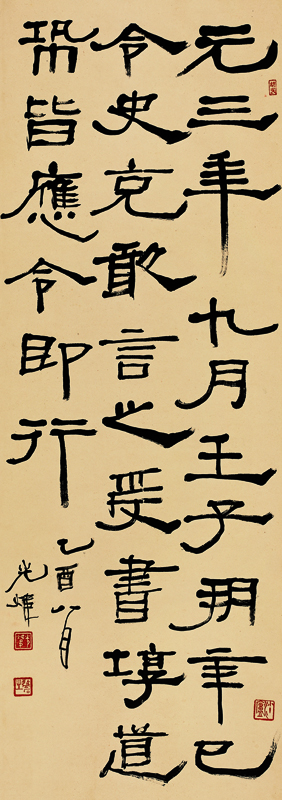 元三年九月壬子朔辛巳
令史充敢言之受書埻道
皆應令即行
乙酉八月
光煒